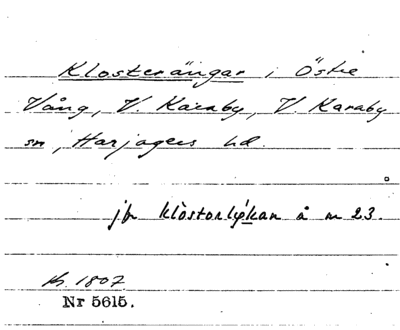 Klosterängar i Östre
Vång, V. Karaby, V. Karaby
sn, Harjagers hd.
jfr klòstorlýkan å n 23.
Nr 5615.
1807